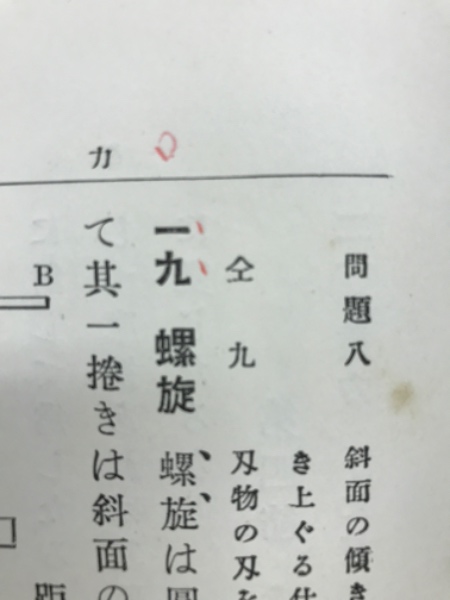 問題八 斜面の傾き
き上ぐる仕
仝九 刃物の刃を
一九 螺旋 螺旋は圓
て其一捲きは斜面の
カ
B
距